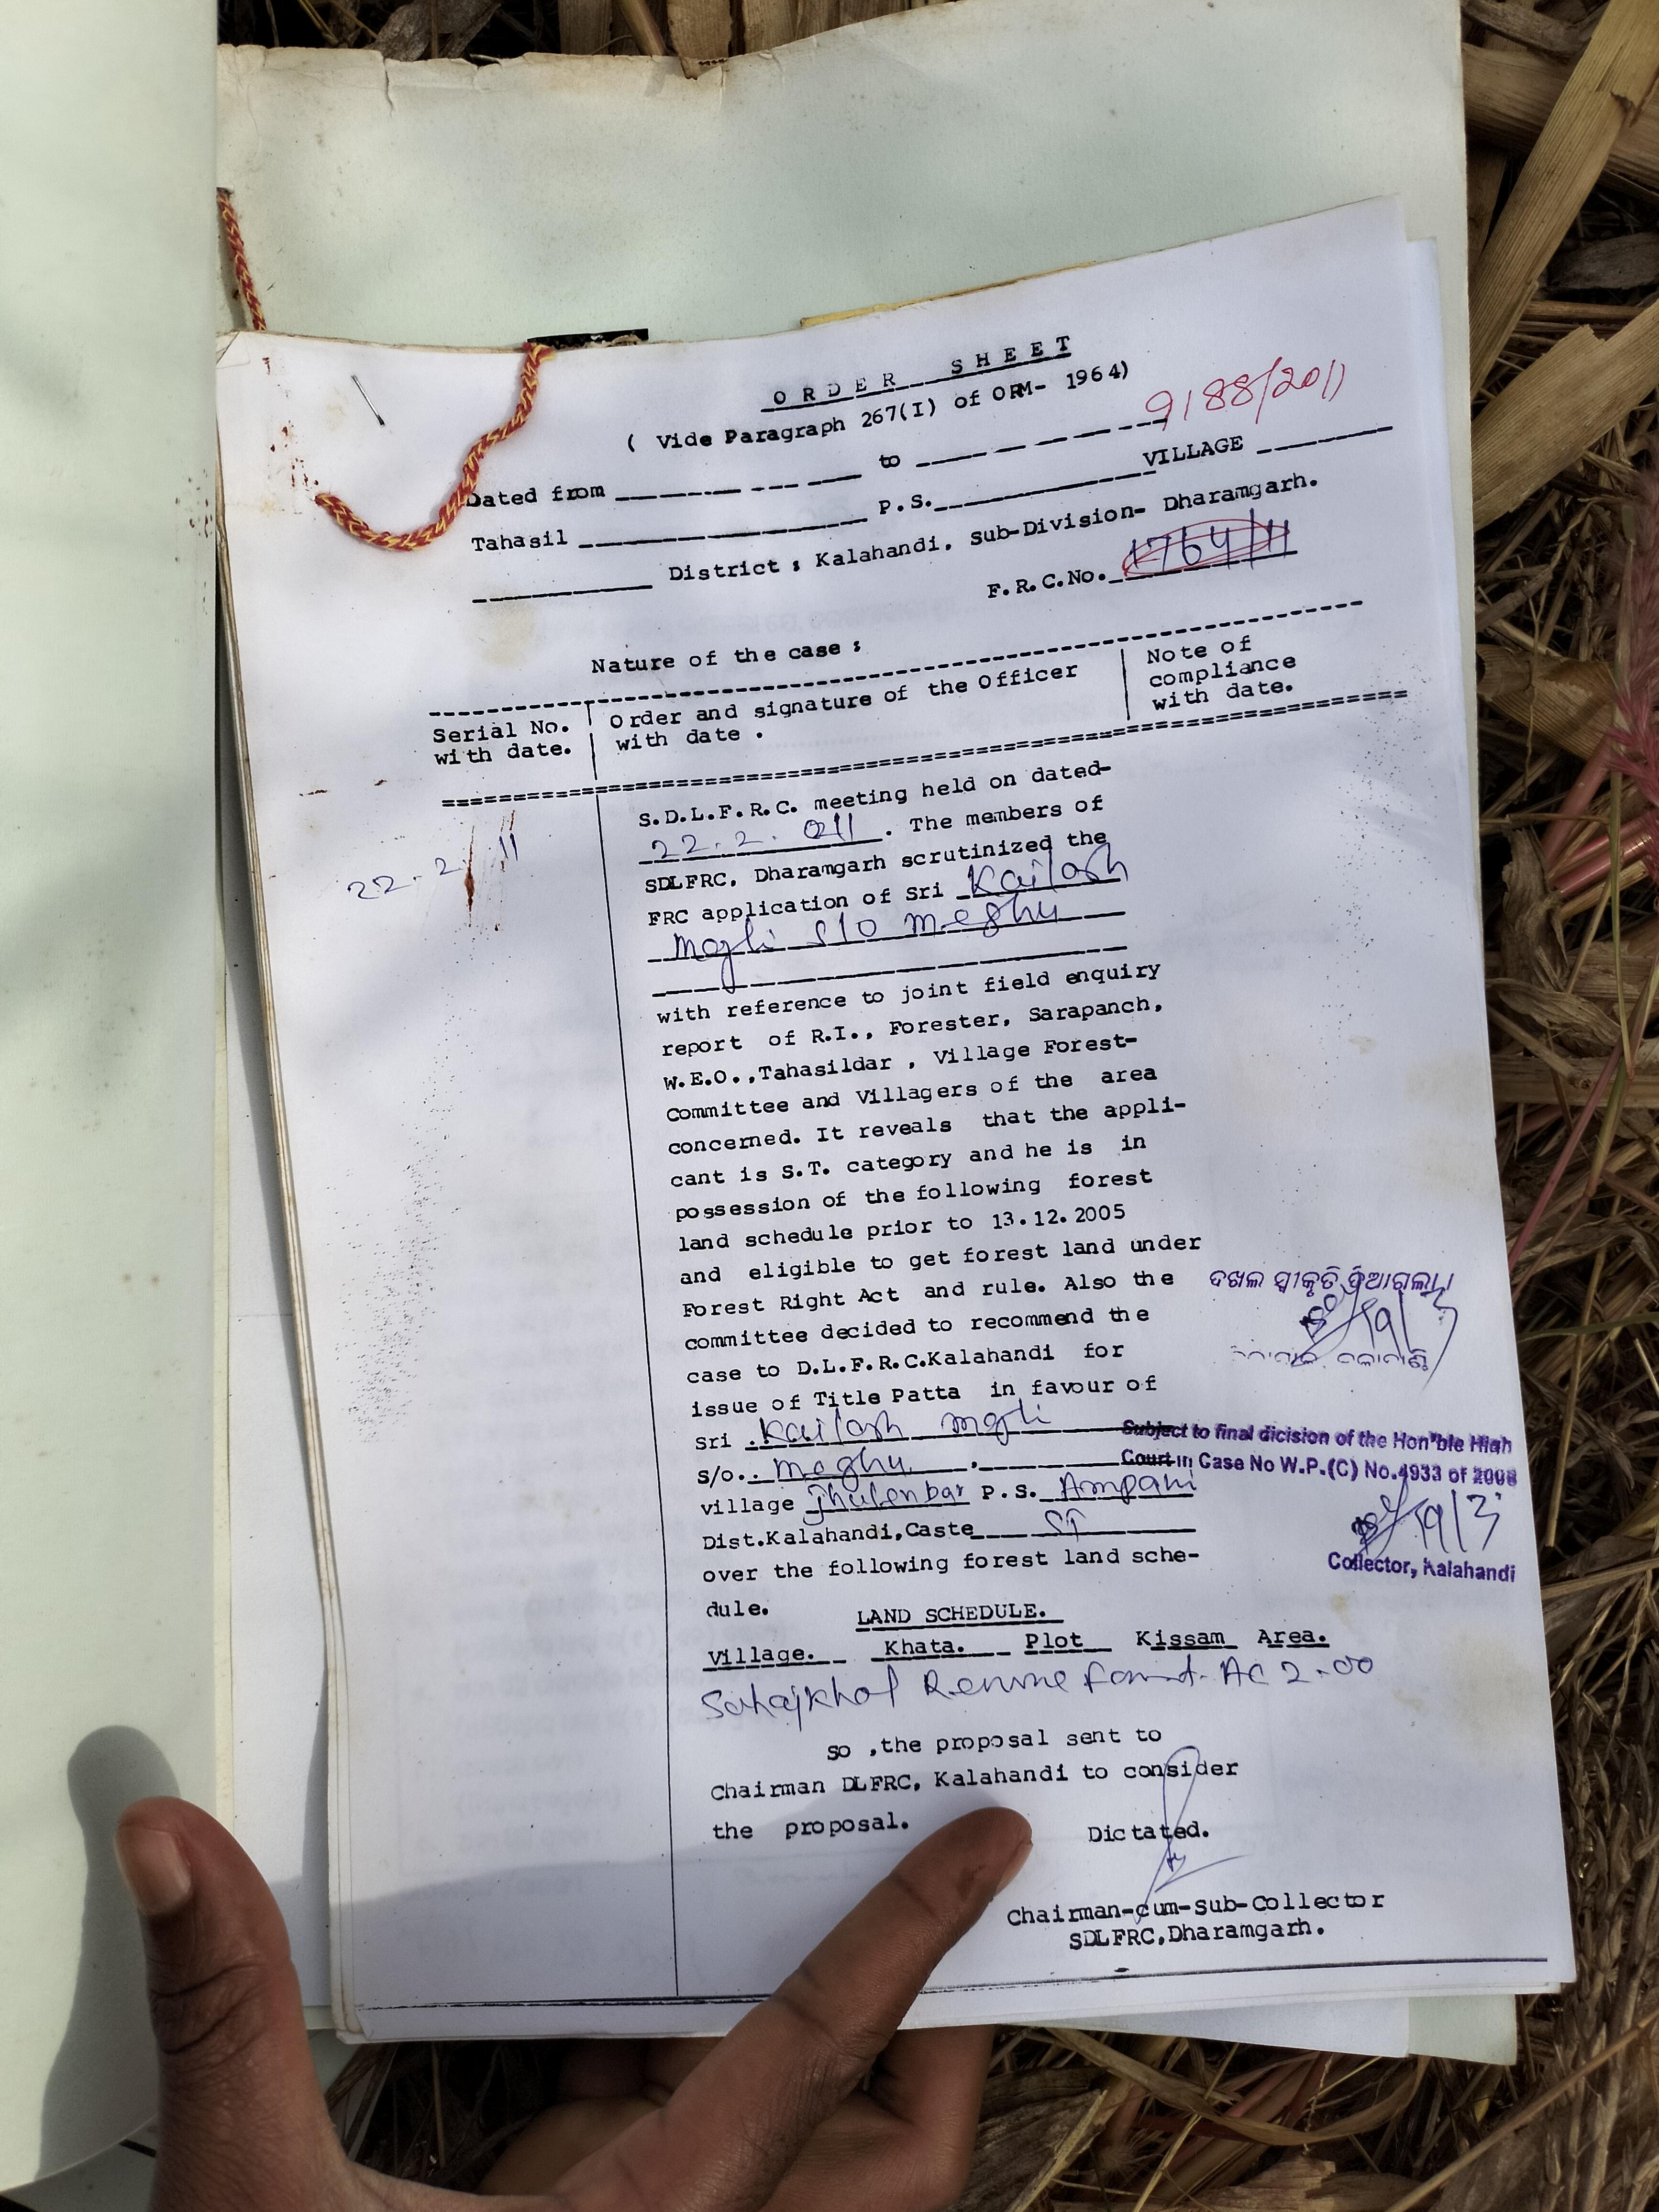 ORDER SHEET
( Vide Paragraph 267(I) of ORM- 1964)
9188/2011
Dated from ________ to ________ VILLAGE ________
Tahasil ________ P.S. ________
________ District ; Kalahandi, Sub-Division- Dharamgarh.
F.R.C.No. 1764/11
Nature of the case ;
Serial No. with date.
Order and signature of the Officer with date .
Note of compliance with date.
22.2.11
S.D.L.F.R.C. meeting held on dated-
22.2.011. The members of
SDLFRC, Dharamgarh scrutinized the
FRC application of Sri Kailash
majhi S/o Meghu
with reference to joint field enquiry
report of R.I., Forester, Sarapanch,
W.E.O.,Tahasildar , Village Forest-
Committee and Villagers of the area
concerned. It reveals that the appli-
cant is S.T. category and he is in
possession of the following forest
land schedule prior to 13.12.2005
and eligible to get forest land under
Forest Right Act and rule. Also the
committee decided to recommend the
case to D.L.F.R.C.Kalahandi for
issue of Title Patta in favour of
Sri Kailash majhi
S/o. Meghu
village Jhulenbar P.S. Ampani
Dist.Kalahandi,Caste ST
over the following forest land sche-
dule.
ଦଖଲ ସ୍ୱୀକୃତି ଦିଆଗଲା।
19/3
Subject to final dicision of the Hon"ble High
Court in Case No W.P.(C) No.4933 of 2008
19/3
Collector, Kalahandi
LAND SCHEDULE.
Village. Khata. Plot Kissam Area.
Sahajkhol Revenue Forest. AC 2.00
So ,the proposal sent to
Chairman DLFRC, Kalahandi to consider
the proposal.
Dictated.
Chairman-cum-Sub-Collector
SDLFRC,Dharamgarh.